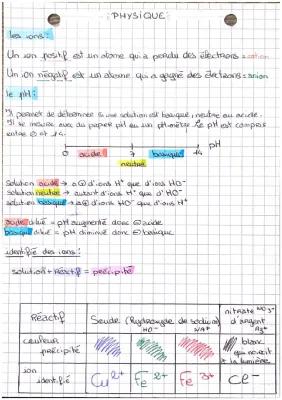 PHYSIQUE
les ions :
Un ion positif est un atome qui a perdu des électrons = cation
Un ion négatif est un atome qui a gagné des électrons = anion
le pH :
Il permet de déterminer si une solution est basique, neutre ou acide.
Il se mesure avec du papier pH ou un pH-mètre. Le pH est compris
entre 0 et 14.
0 acide 7 basique 14 pH
neutre
solution acide → a ⊕ d'ions H⁺ que d'ions HO⁻
solution neutre → autant d'ions H⁺ que d'ions HO⁻
solution basique → a ⊕ d'ions HO⁻ que d'ions H⁺
acide dilué = pH augmente donc ⊖ acide
basique dilué = pH diminue donc ⊖ basique
identifié des ions :
solution + réactif = précipité
Réactif
Soude (Hydroxyde de sodium)
HO⁻ Na⁺
nitrate NO3⁻
d'argent
Ag⁺
couleur
précipité
blanc
qui noircit
à la lumière
ion
identifié
Cu²⁺
Fe²⁺
Fe³⁺
Cl⁻